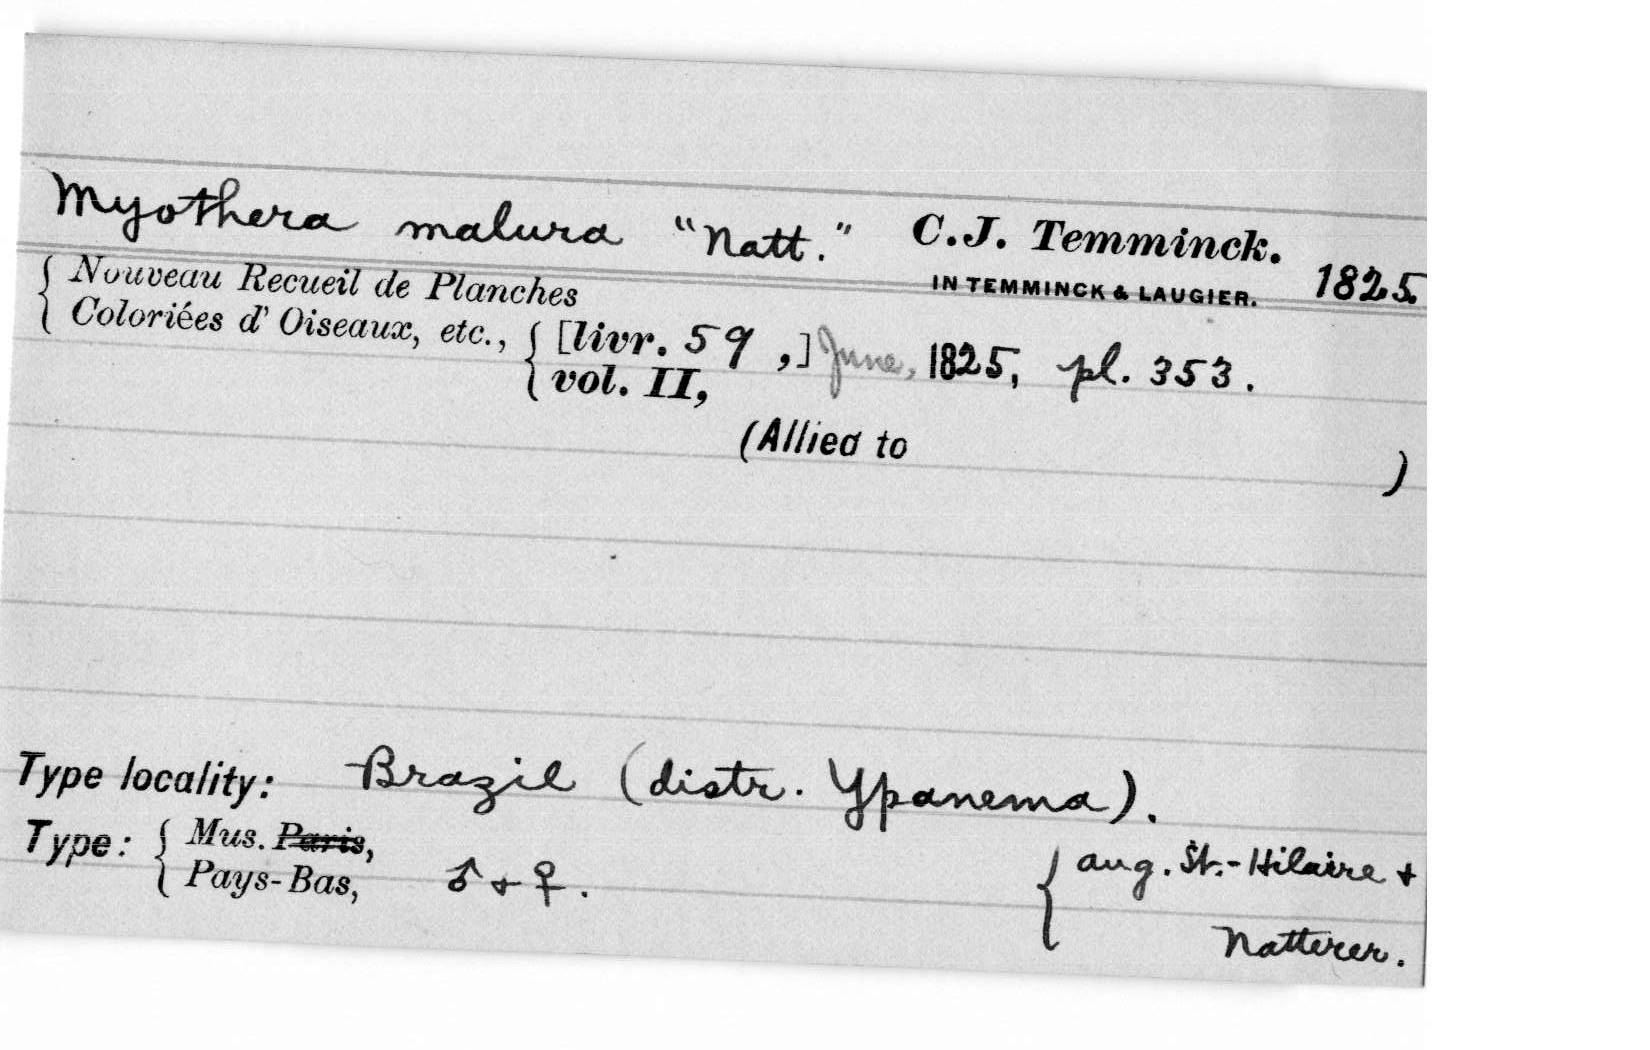 Myothera malura "Natt." C.J. Temminck.
IN TEMMINCK & LAUGIER. 1825.
Nouveau Recueil de Planches
Coloriées d' Oiseaux, etc.,
[livr. 59 ,] June, 1825, pl. 353.
vol. II,
(Allied to )
Type locality: Brazil (distr. Ypanema).
Type: Mus. Paris,
Pays-Bas, ♂ + ♀.
Aug. St.-Hilaire +
Natterer.